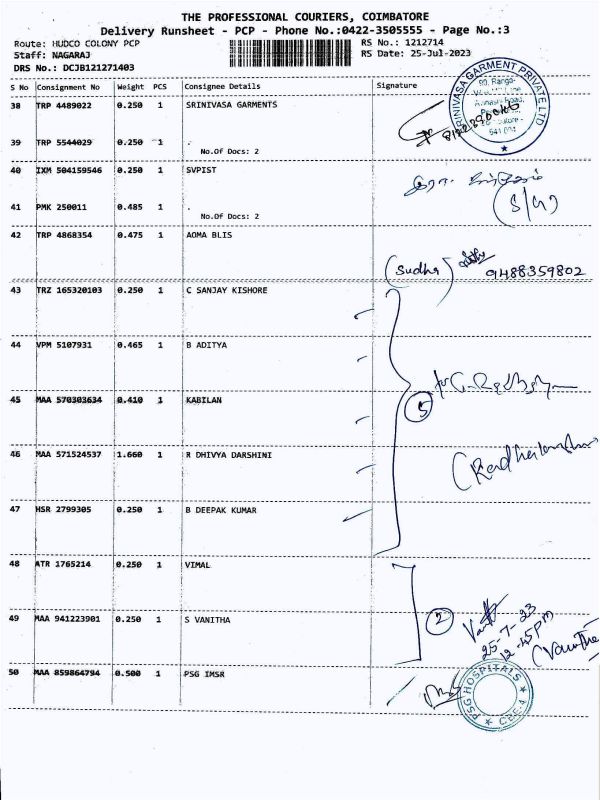 THE PROFESSIONAL COURIERS, COIMBATORE
Delivery Runsheet - PCP - Phone No.:0422-3505555 - Page No.:3
Route: HUDCO COLONY PCP
RS No.: 1212714
Staff: NAGARAJ
RS Date: 25-Jul-2023
DRS No.: DCJB121271403
S No Consignment No Weight PCS Consignee Details Signature
38 TRP 4489022 0.250 1 SRINIVASA GARMENTS
SRINIVASA GARMENT PRIVATE LTD
39 TRP 5544029 0.250 1 .
No.Of Docs: 2
40 IXM 504159546 0.250 1 SVPIST
41 PMK 250011 0.485 1 .
No.Of Docs: 2
42 TRP 4868354 0.475 1 AOMA BLIS
(Sudha)
9488359802
43 TRZ 165320103 0.250 1 C SANJAY KISHORE
44 VPM 5107931 0.465 1 B ADITYA
45 MAA 570303634 0.410 1 KABILAN
5
46 MAA 571524537 1.660 1 R DHIVYA DARSHINI
47 HSR 2799305 0.250 1 B DEEPAK KUMAR
48 ATR 1765214 0.250 1 VIMAL
49 MAA 941223901 0.250 1 S VANITHA
2
25-7-23
12.45pm
(Vanitha
50 MAA 859864794 0.500 1 PSG IMSR
PSG HOSPITALS
CBE-4